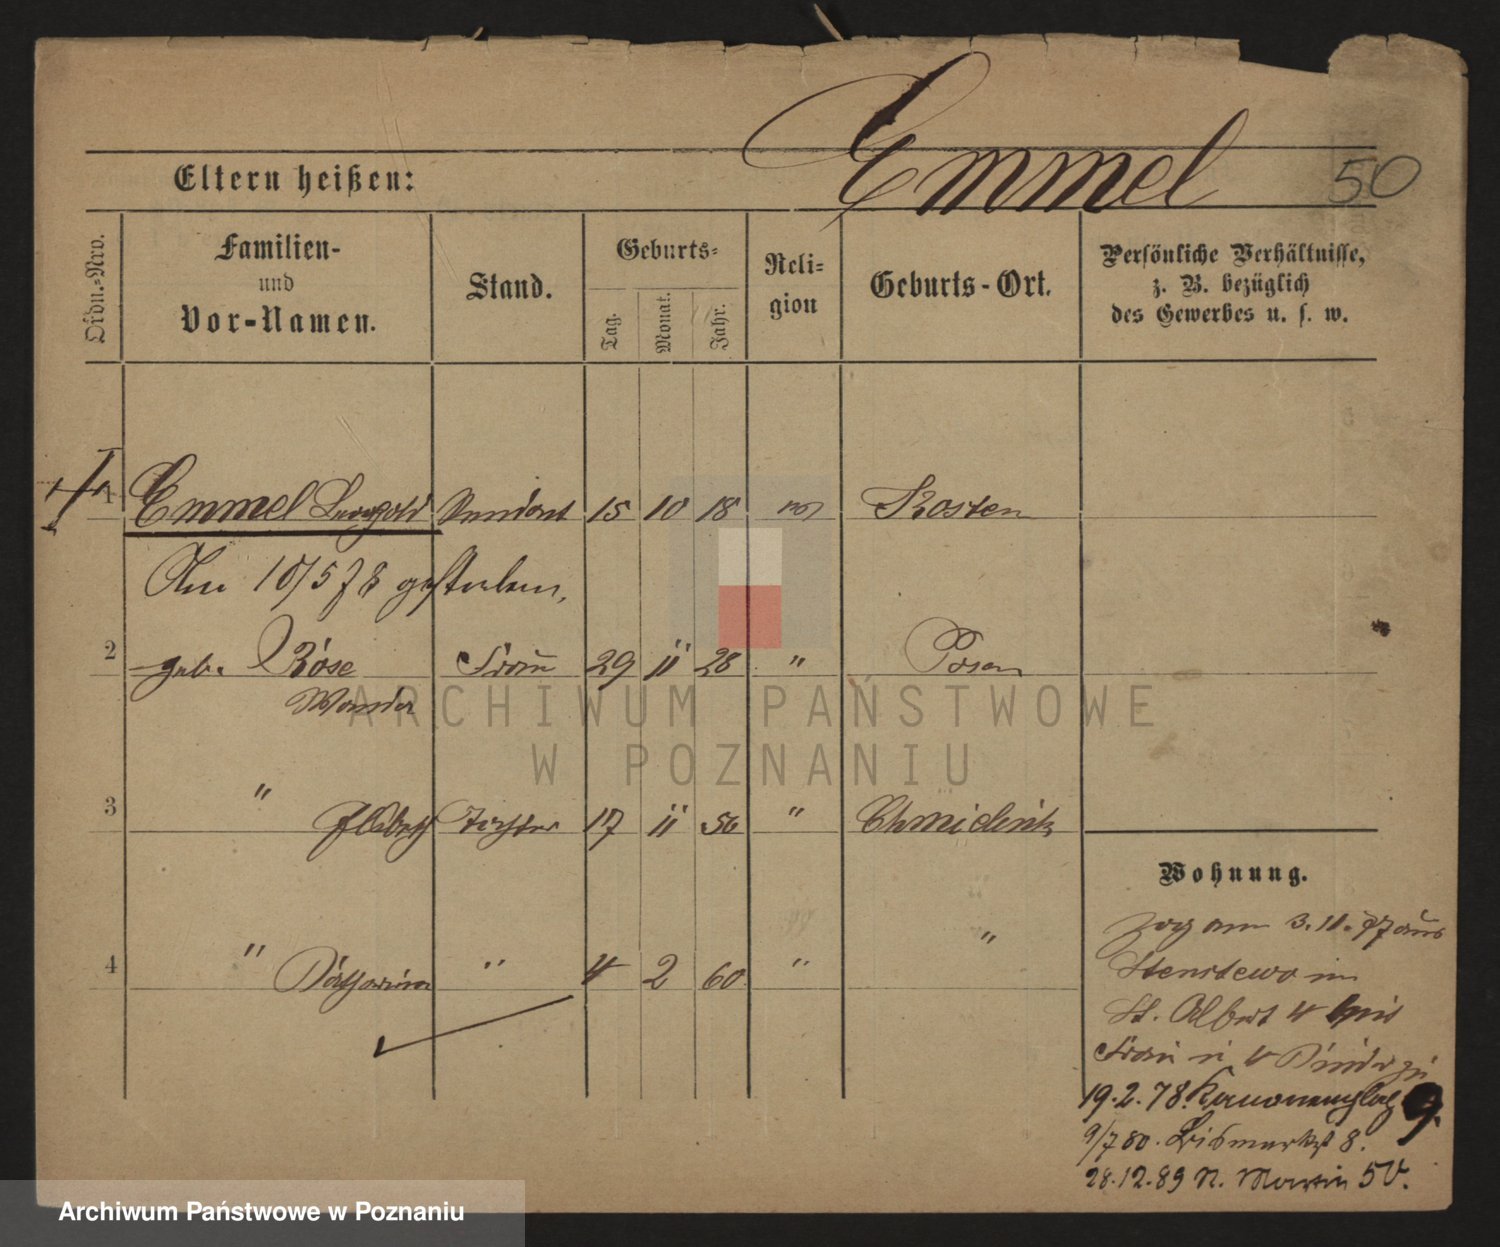 Emmel
50
Eltern heißen:
Ordn.-Nro.
Familien-
und
Vor-Namen.
Stand.
Geburts-
Tag.
Monat.
Jahr.
Reli-
gion
Geburts-Ort.
Persönliche Verhältnisse,
z. B. bezüglich
des Gewerbes u. s. w.
1 Emmel Leopold Rendant 15 10 18 Kosten
Am 10/5 78 gestorben.
2 geb. Röse Frau 29 11 28 " Posen
Wanda
3 " Elsbeth Tochter 17 11 56 "
4 " Katharina " 4 2 60 " "
Wohnung.
zog am 3.11.77 aus
Stenschewo in
St. Albert 4
Frau u 4 Kinder zu
19.2.78. Kanonenplatz 9.
9/7 80. Bismarckst 8.
28.12.89 N. Martin 5 V.
ARCHIWUM PAŃSTWOWE
W POZNANIU
Archiwum Państwowe w Poznaniu